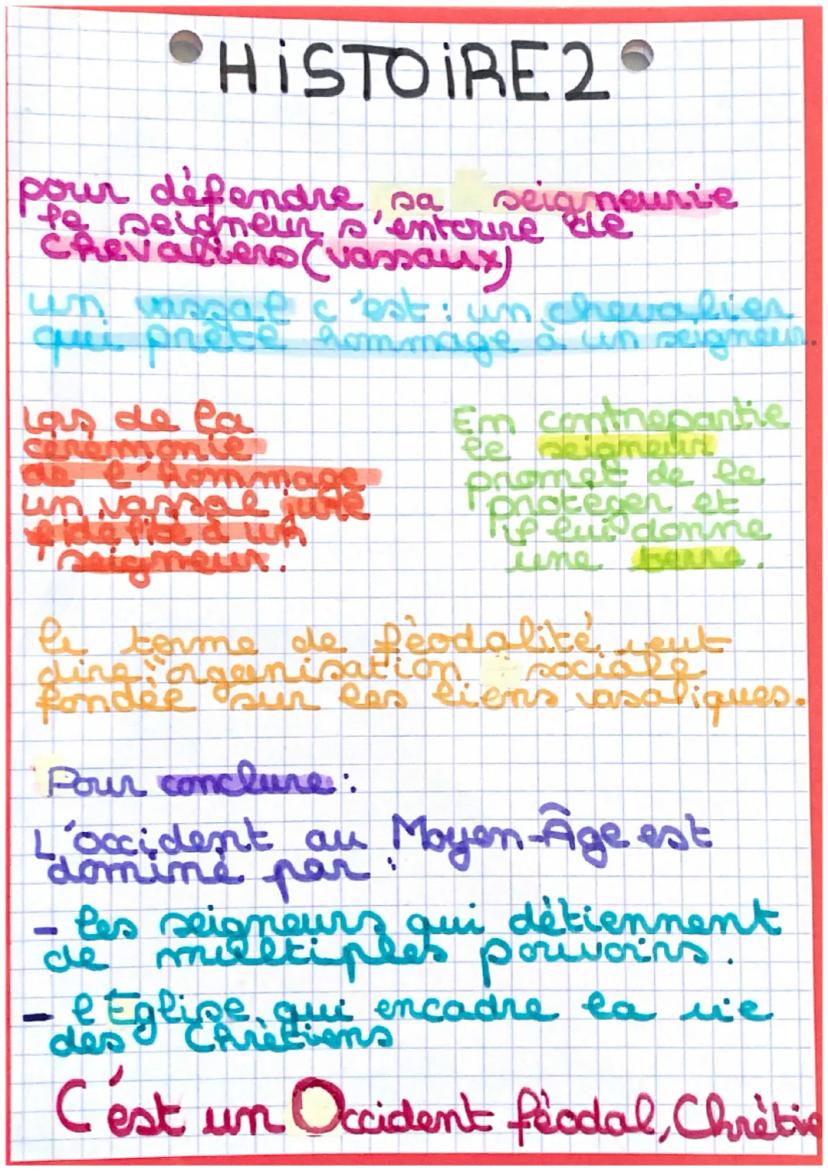 HiSTOiRE2
pour défendre sa seigneurie
le seigneur s'entoure de
chevaliers (vassaux)
un vassal c'est : un chevalier
qui prête hommage à un seigneur.
Lors de la
cérémonie
de l'hommage
un vassal jure
fidelité à un
seigneur.
En contrepartie
le seigneur
promet de le
protéger et
il lui donne
une terre.
le terme de féodalité veut
dire: organisation sociale
fondée sur les liens vasaliques.
Pour conclure :
L'occident au Moyen-Âge est
dominé par :
- les seigneurs qui détiennent
de multiples pouvoirs.
- l'Eglise qui encadre la vie
des Chrétiens
C'est un Occident féodal, Chrétie